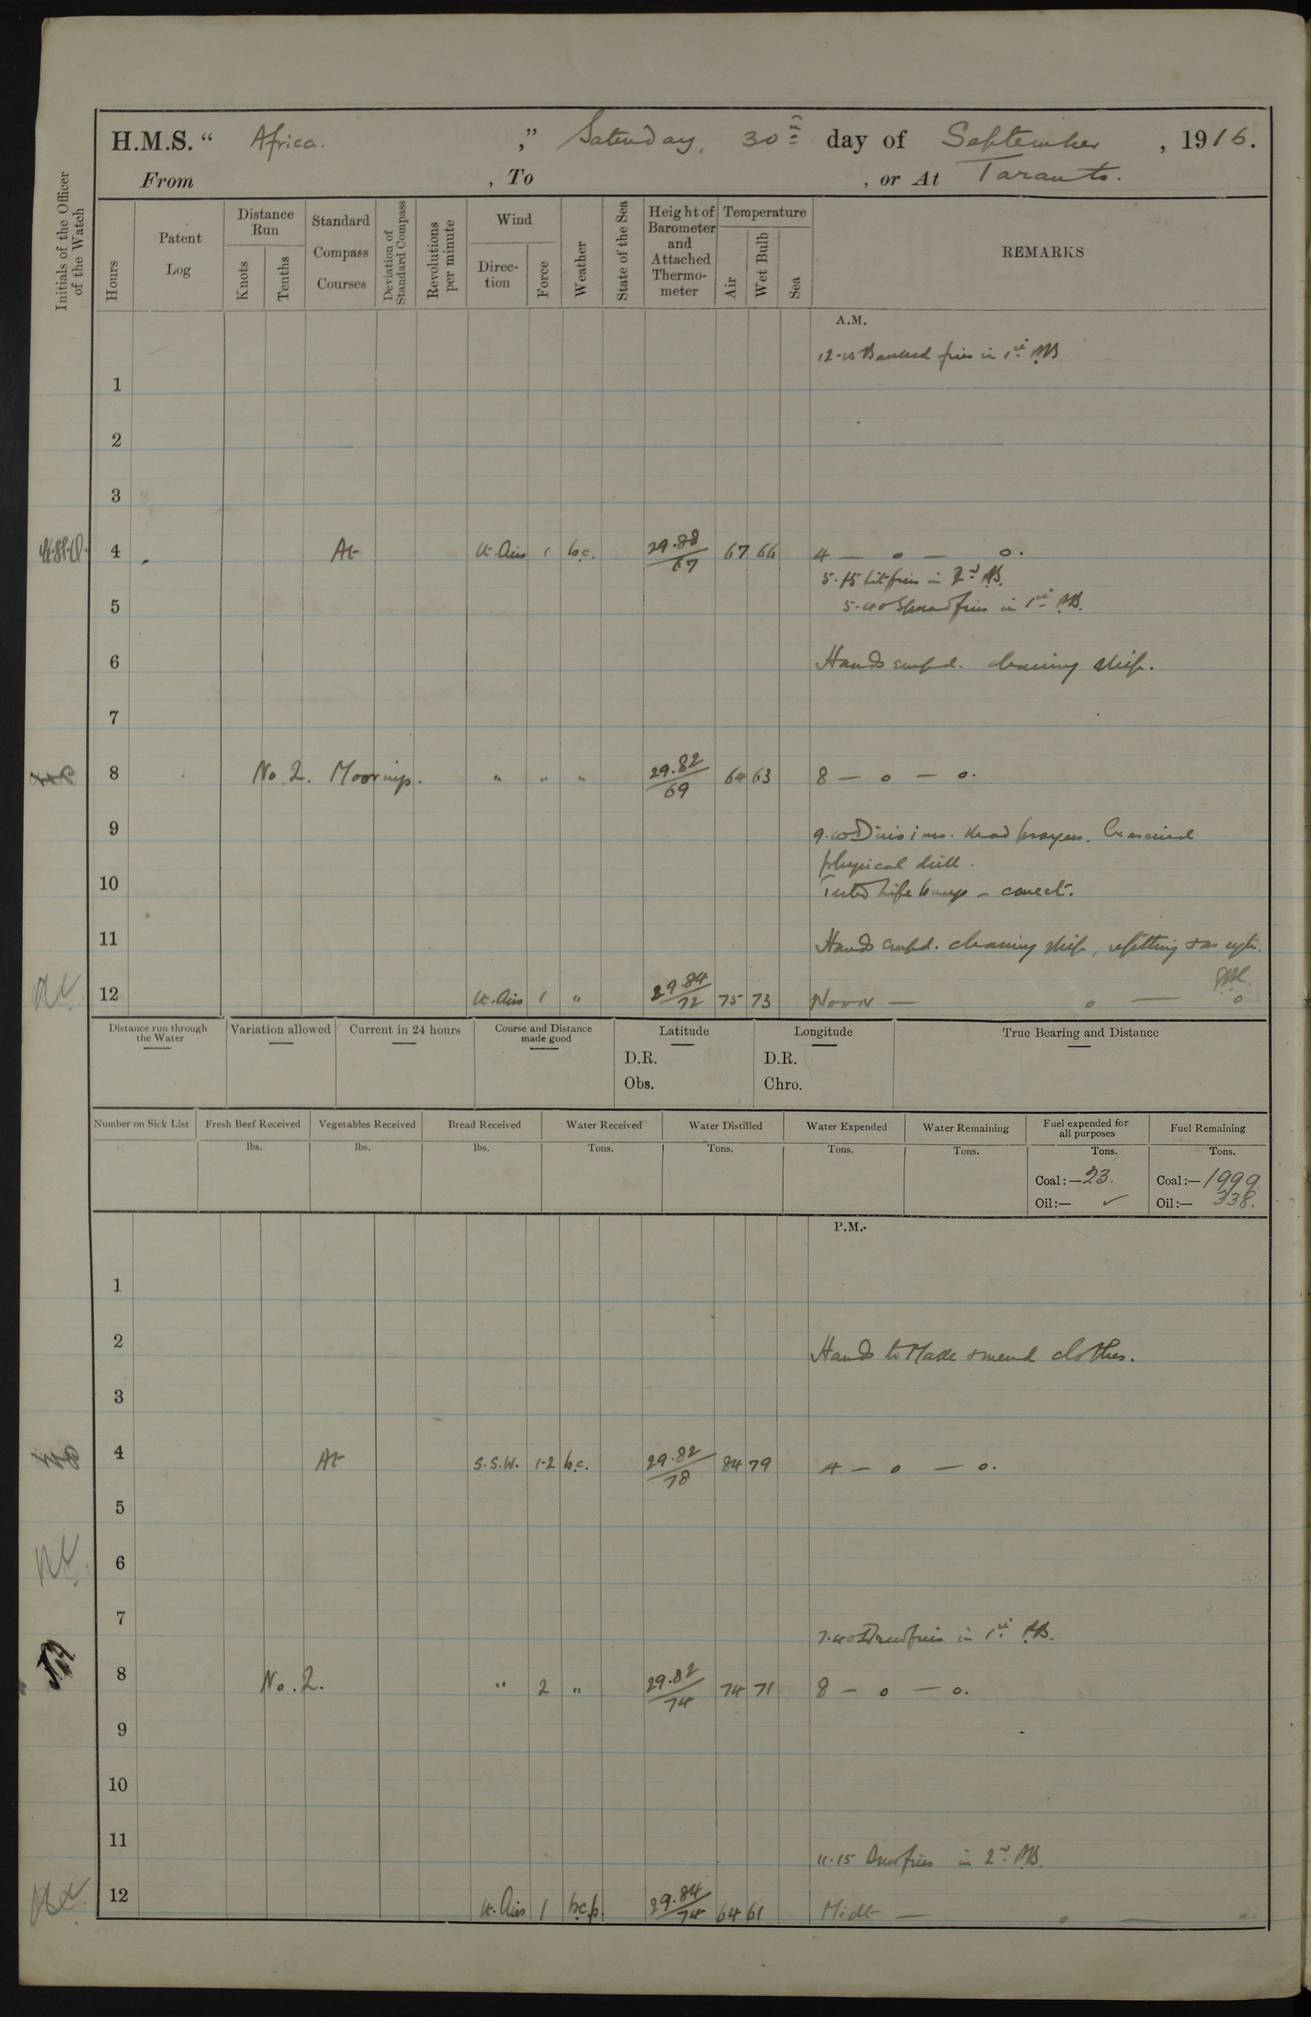 H.M.S. " Africa. ," Saturday, 30th day of September, 1916.
From , To , or At Taranto.
Initials of the Officer of the Watch
Hours
Patent Log
Distance Run
Knots
Tenths
Standard Compass Courses
Deviation of Standard Compass
Revolutions per minute
Wind
Direction
Force
Weather
State of the Sea
Height of Barometer and Attached Thermometer
Temperature
Air
Wet Bulb
Sea
REMARKS
A.M.
12-15 Banked fires in 1st PB
1
2
3
4 At Lt. Airs 1 b.c. 29.88/67 67 66 4 — o — o.
5.15 Lit fires in 2nd PB.
5 5.40 Spread fires in 1st PB.
6 Hands empd. cleaning ship.
7
8 No 2. Moorings. " " " 29.82/69 64 63 8 — o — o.
9 9.10 Divisions. Read prayers. Exercised
physical drill.
10 Tested Life buoys – correct.
11 Hands empd. cleaning ship, refitting
12 Lt. Airs 1 " 29.84/72 75 73 Noon — o — o
Distance run through the Water
Variation allowed
Current in 24 hours
Course and Distance made good
Latitude
D.R.
Obs.
Longitude
D.R.
Chro.
True Bearing and Distance
Number on Sick List
Fresh Beef Received
Vegetables Received
Bread Received
Water Received
Water Distilled
Water Expended
Water Remaining
Fuel expended for all purposes
Fuel Remaining
lbs. lbs. lbs. Tons. Tons. Tons. Tons. Tons. Tons.
Coal:—23. Coal:—1999.
Oil:— ✓ Oil:— 338.
P.M.
1
2 Hands to Make & mend clothes.
3
4 At S.S.W. 1-2 b.c. 29.82/78 84 79 4 — o — o.
5
6
7 7.40 Drew fires in 1st PB.
8 No. 2. " 2 " 29.82/74 74 71 8 — o — o.
9
10
11 11.15 Drew fires in 2nd PB.
12 Lt. Airs 1 b.c.p. 29.84/74 64 61 Midt — o —